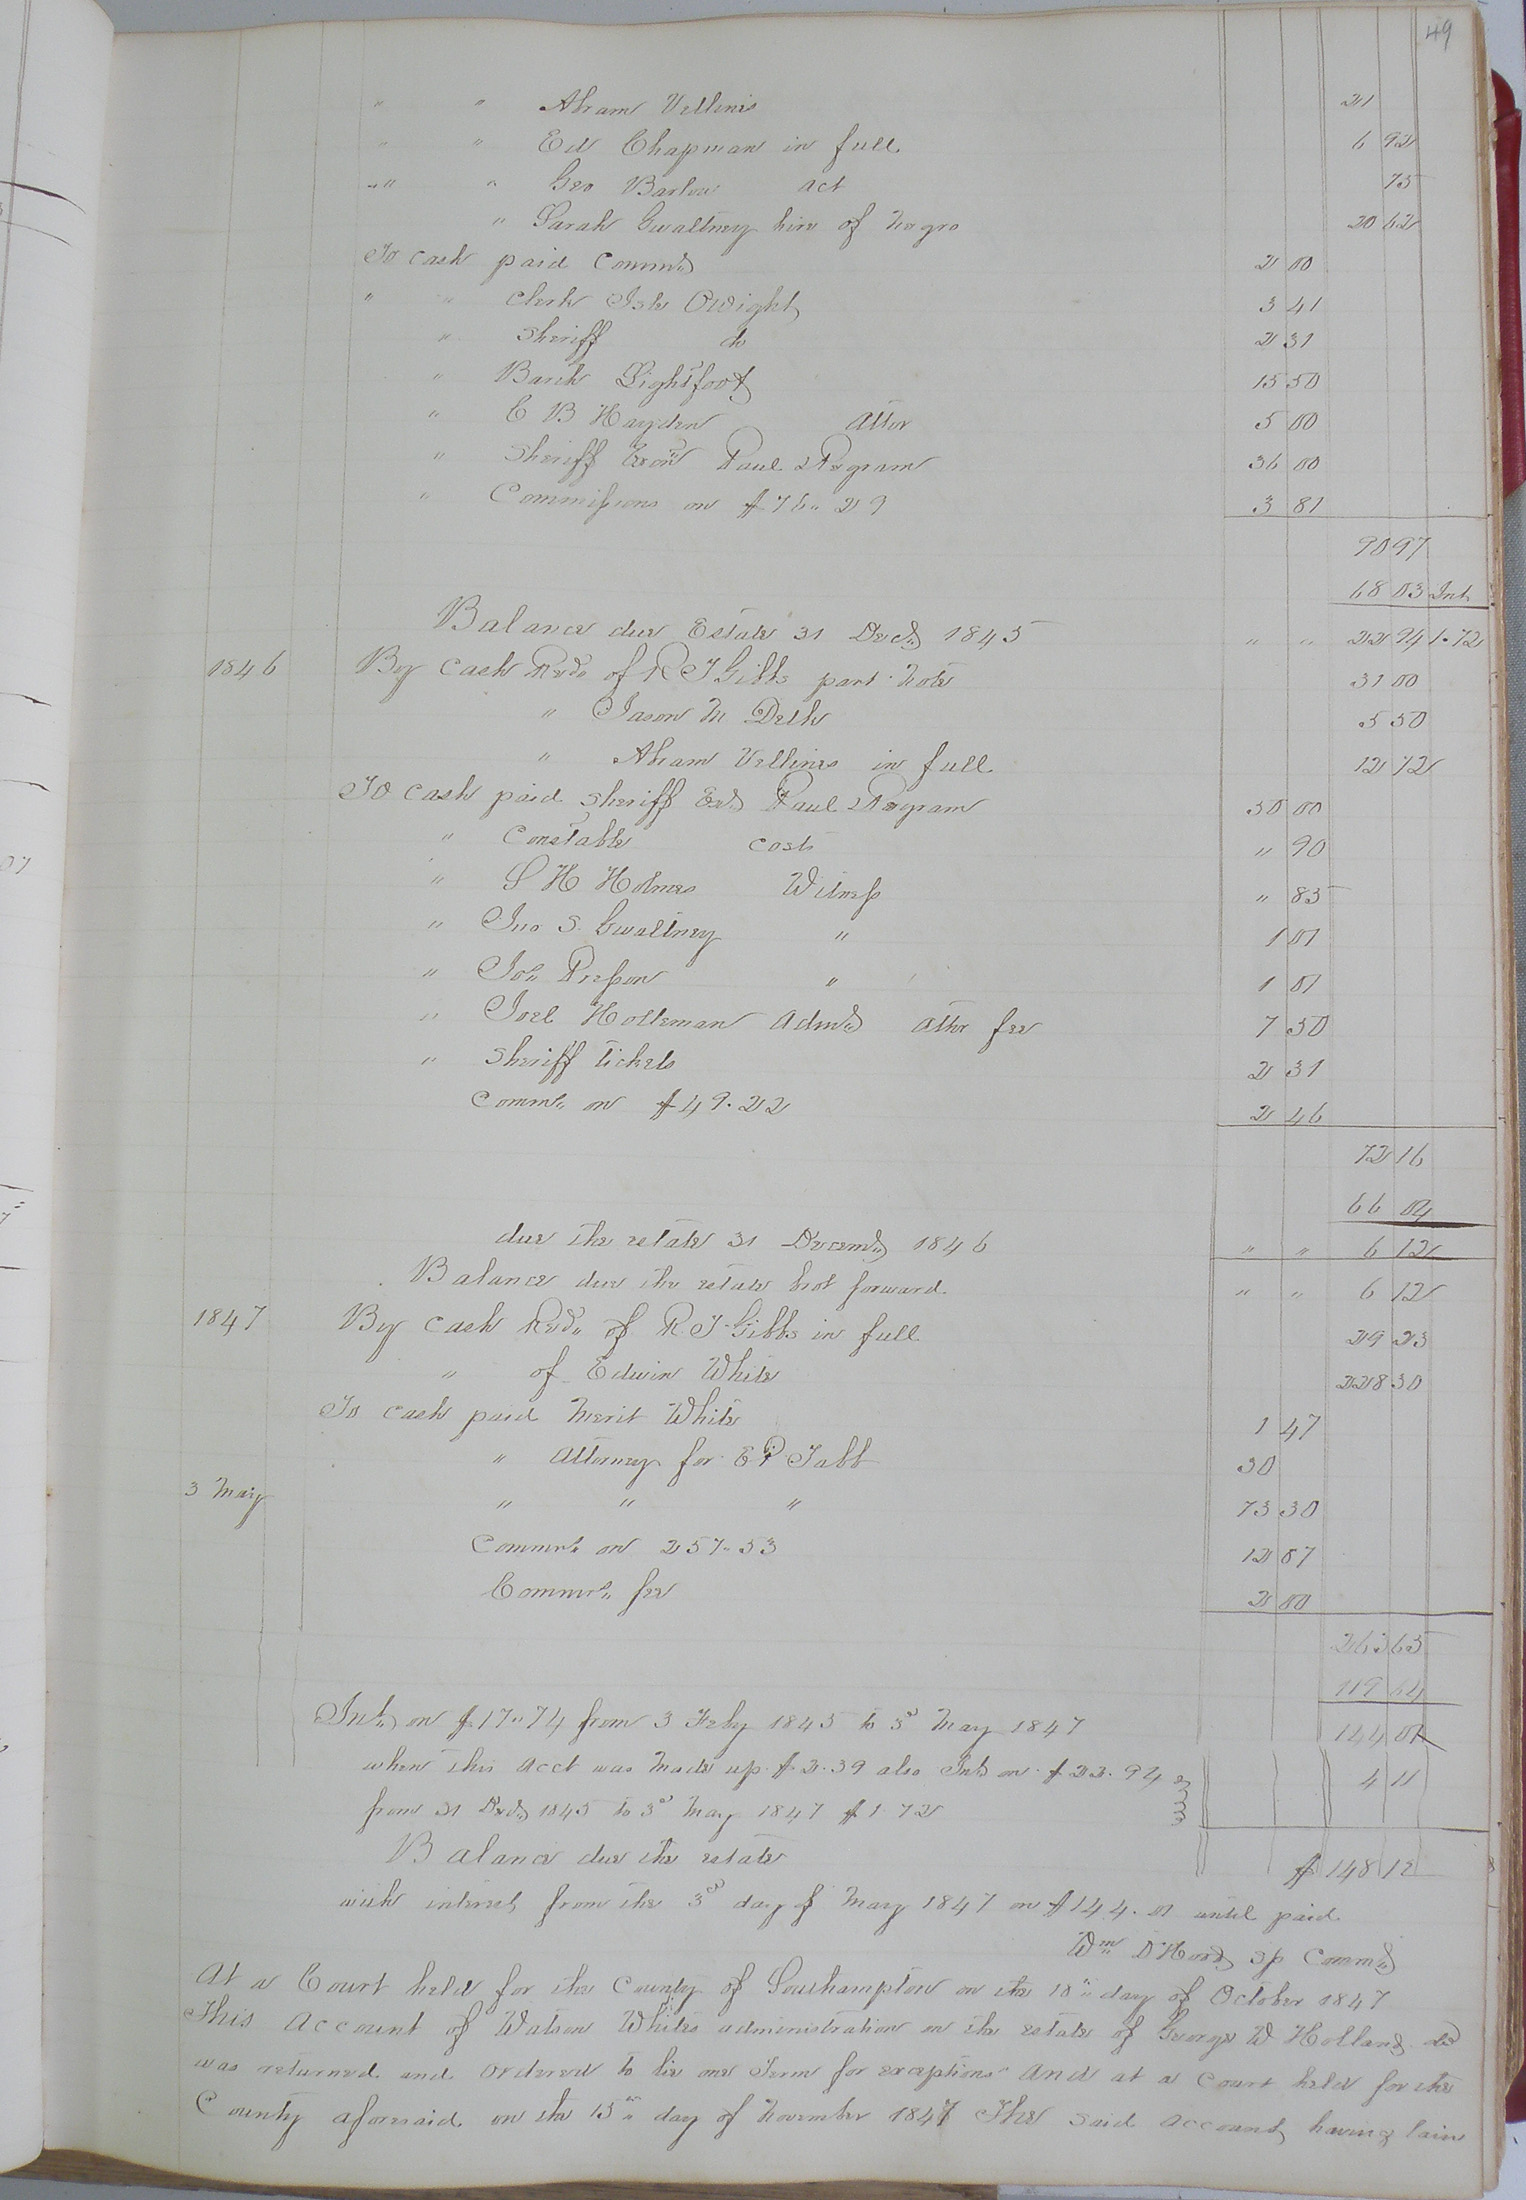 49
" " Abram Vellines 21
" " Ed Chapman in full 6 92
" " Geo Barlow act 75
" Sarah Gwaltney hire of negro 20 62
To cash paid Commr 2 00
" " Clerk Isle Owight 3 41
" Sheriff do 2 31
" Barth Lightfoot 15 50
" C B Hayden Attor 5 00
" Sheriff Exon Paul Pegram 36 00
" Commissions on $76.. 29 3 81
90 97
68 03 Int
Balance due Estate 31 Decr 1845 " " 22 94 1.72
1846 By Cash Recd of R T Gibbs part note 31 00
" Jason M Delk 5 50
" Abram Vellines in full 12 72
To cash paid Sheriff Exr Paul Pegram 50 00
" Constable costs " 90
" S H Holmes Witness " 85
" Jno S. Gwaltney " 1 01
" Jos Presson " 1 01
" Joel Holleman Admr attor fee 7 50
" Sheriff tickets 2 31
Comms on $49.22 2 46
72 16
66 04
due the estate 31 Decemr 1846 " " 6 12
Balance due the estate brot forward " " 6 12
1847 By Cash Recd of R. T. Gibbs in full 29 23
" of Edwin White 228 30
To cash paid Merit White 1 47
" Attorney for E P Tabb 30
3 May " " " 73 30
Comms on 257.. 53 12 87
Commr fee 2 00
263 65
119 64
Int on $17..74 from 3 Feby 1845 to 3d May 1847 144 01
when this acct was made up $2.39 also Int on $22.94 4 11
from 31 Decr 1845 to 3d May 1847 $1.72
Balance due the estate $148 12
with interest from the 3d day of May 1847 on $144.01 until paid
Wm D Hood Sp Commr
At a Court held for the County of Southampton on the 18th day of October 1847
This Account of Watson Whites administration on the estate of George W Holland decd
was returned and ordered to lie one Term for exceptions And at a Court held for the
County aforesaid on the 15th day of November 1847 The said account having lain